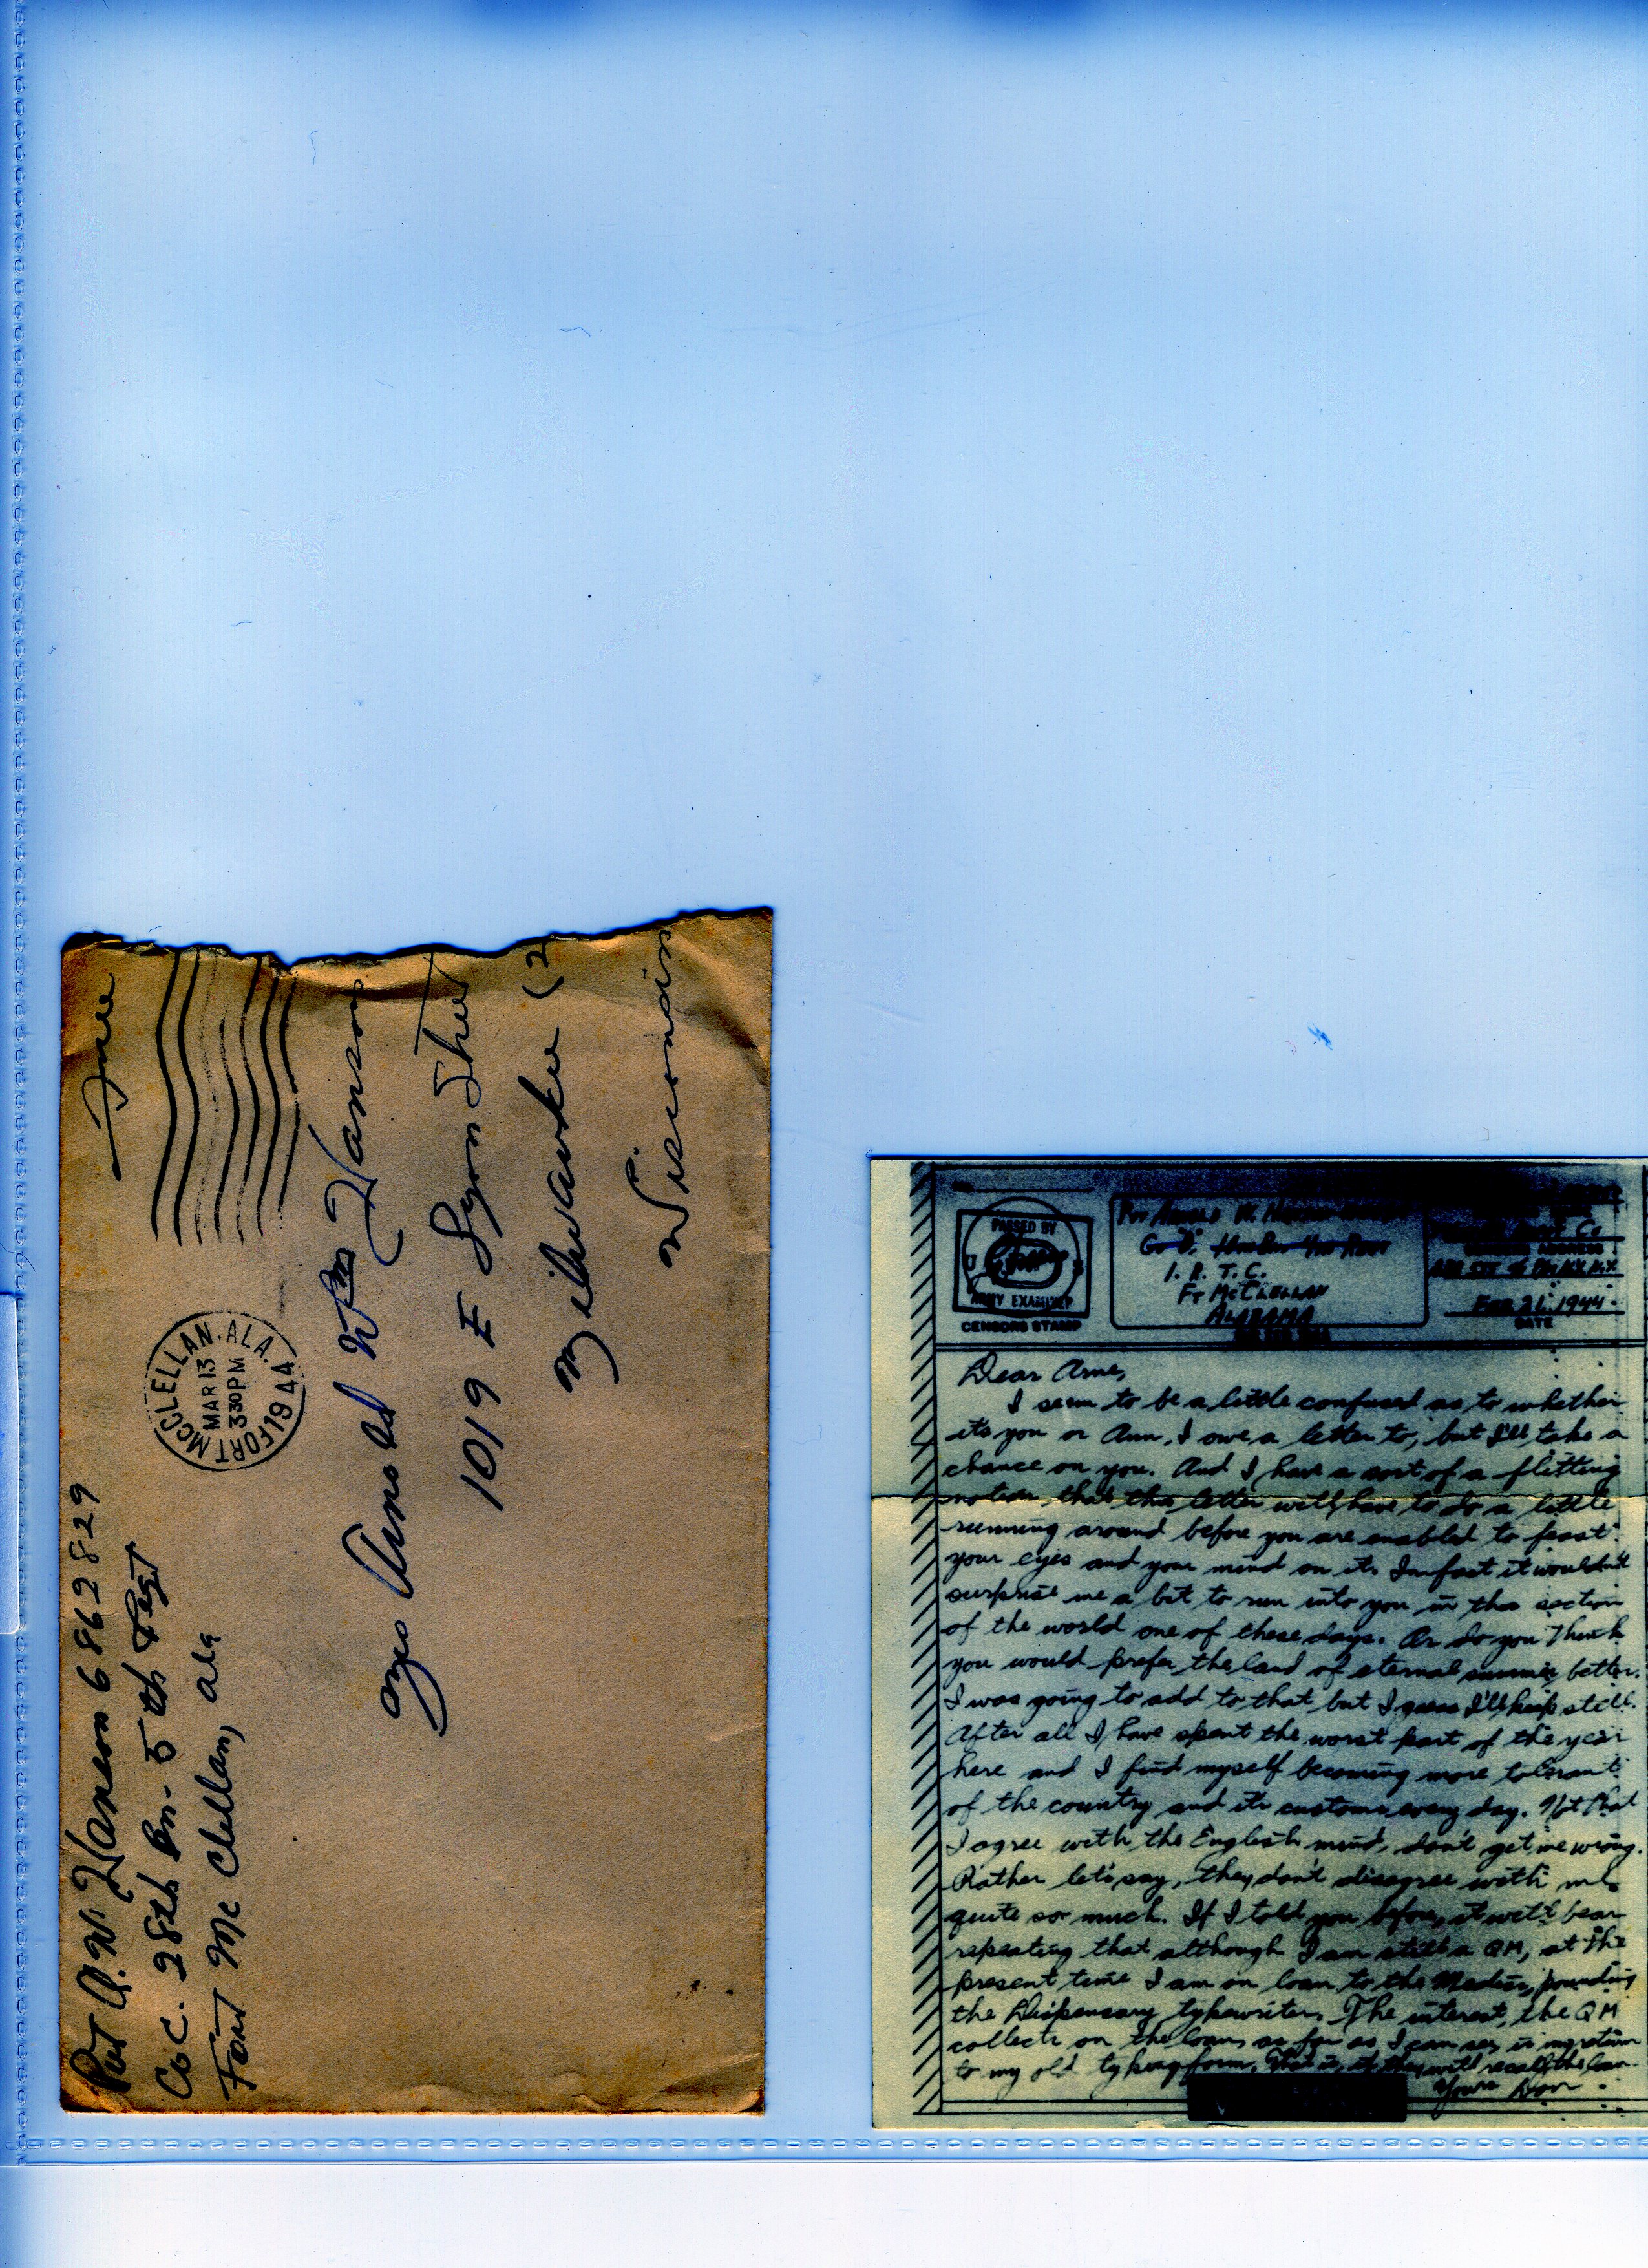 Pvt A. W. Hanson 6862829
Co C. 28th Bn - 5th Regt
Fort Mc Clellan, Ala
Free
FORT MCCLELLAN, ALA.
MAR 13
330 PM
1944
Mrs Arnold Wm Hanson
1019 E Lyon Stree
Milwaukee (2
Wisconsin
PASSED BY
U S
ARMY EXAMINER
CENSOR'S STAMP
Pvt Arnold W. Hanson
I. R. T. C.
Ft McClellan
Alabama
Feb 21, 1944
DATE
Dear Arne,
I seem to be a little confused as to whether
its you or Ann, I owe a letter to, but I'll take a
chance on you. And I have a sort of a flitting
notion that this letter will have to do a little
running around before you are enabled to feast
your eyes and your mind on it. In fact it wouldn't
surprise me a bit to run into you in this section
of the world one of these days. Or do you think
you would prefer the land of eternal summer better.
I was going to add to that but I guess I'll keep still.
After all I have spent the worst part of the year
here and I find myself becoming more tolerant
of the country and its customs every day. Not that
I agree with the English mind, don't get me wrong.
Rather let's say, they don't disagree with me
quite so much. If I told you before, it will bear
repeating that although I am still a QM, at the
present time I am on loan to the Medics, pounding
the Dispensary typewriter. The interest, the QM
collects on the loan, as far as I can see, is my return
to my old typing form. That is, if they will recall the loan.
Yours